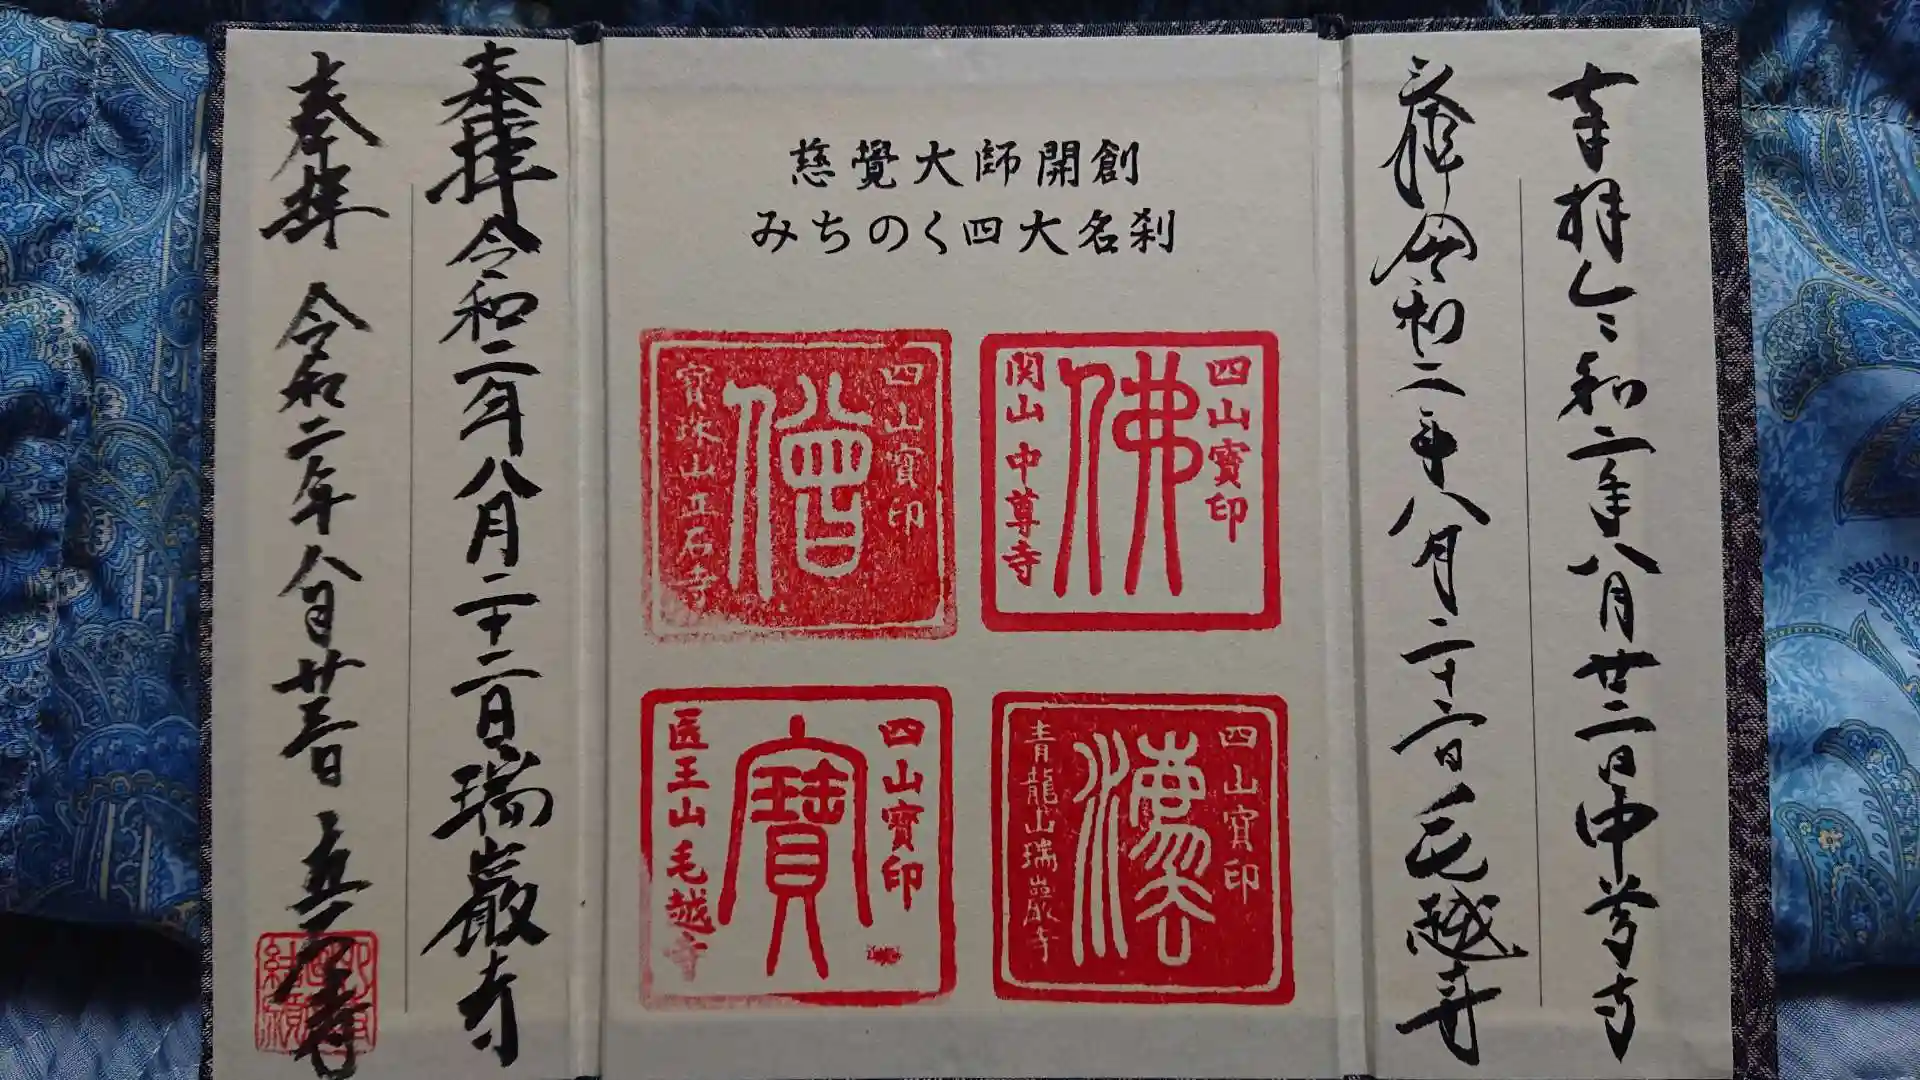 奉拝 令和二年八月廿二日 中尊寺
奉拝 令和二年八月二十六日 毛越寺
慈覺大師開創
みちのく四大名刹
四山寶印
佛
関山 中尊寺
四山寶印
僧
寶珠山立石寺
四山寶印
法
青龍山瑞巌寺
四山寶印
寶
医王山 毛越寺
奉拝 令和二年八月二十二日 瑞巌寺
奉拝 令和二年八月廿三日 立石寺